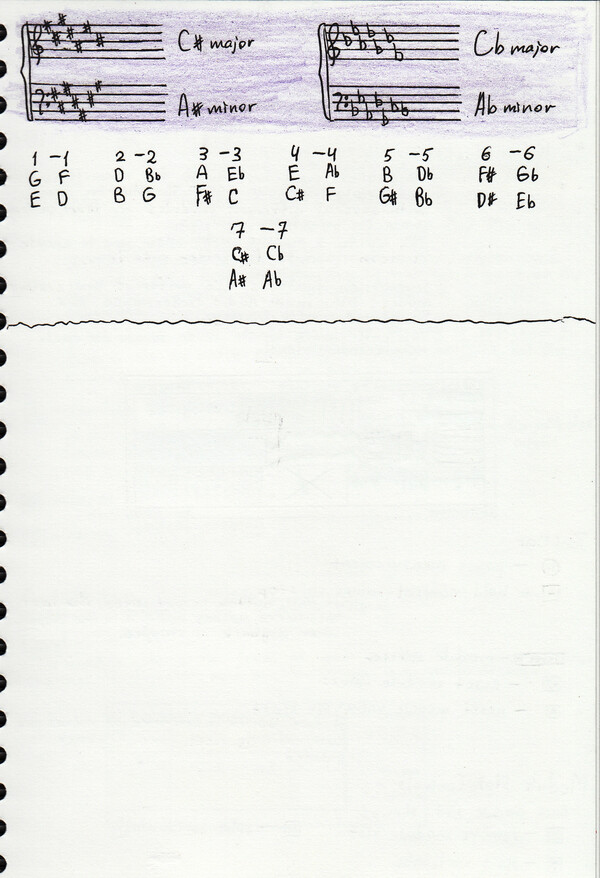 C# major Cb major
A# minor Ab minor
1 -1 2 -2 3 -3 4 -4 5 -5 6 -6
G F D Bb A Eb E Ab B Db F# Gb
E D B G F# C C# F G# Bb D# Eb
7 -7
C# Cb
A# Ab